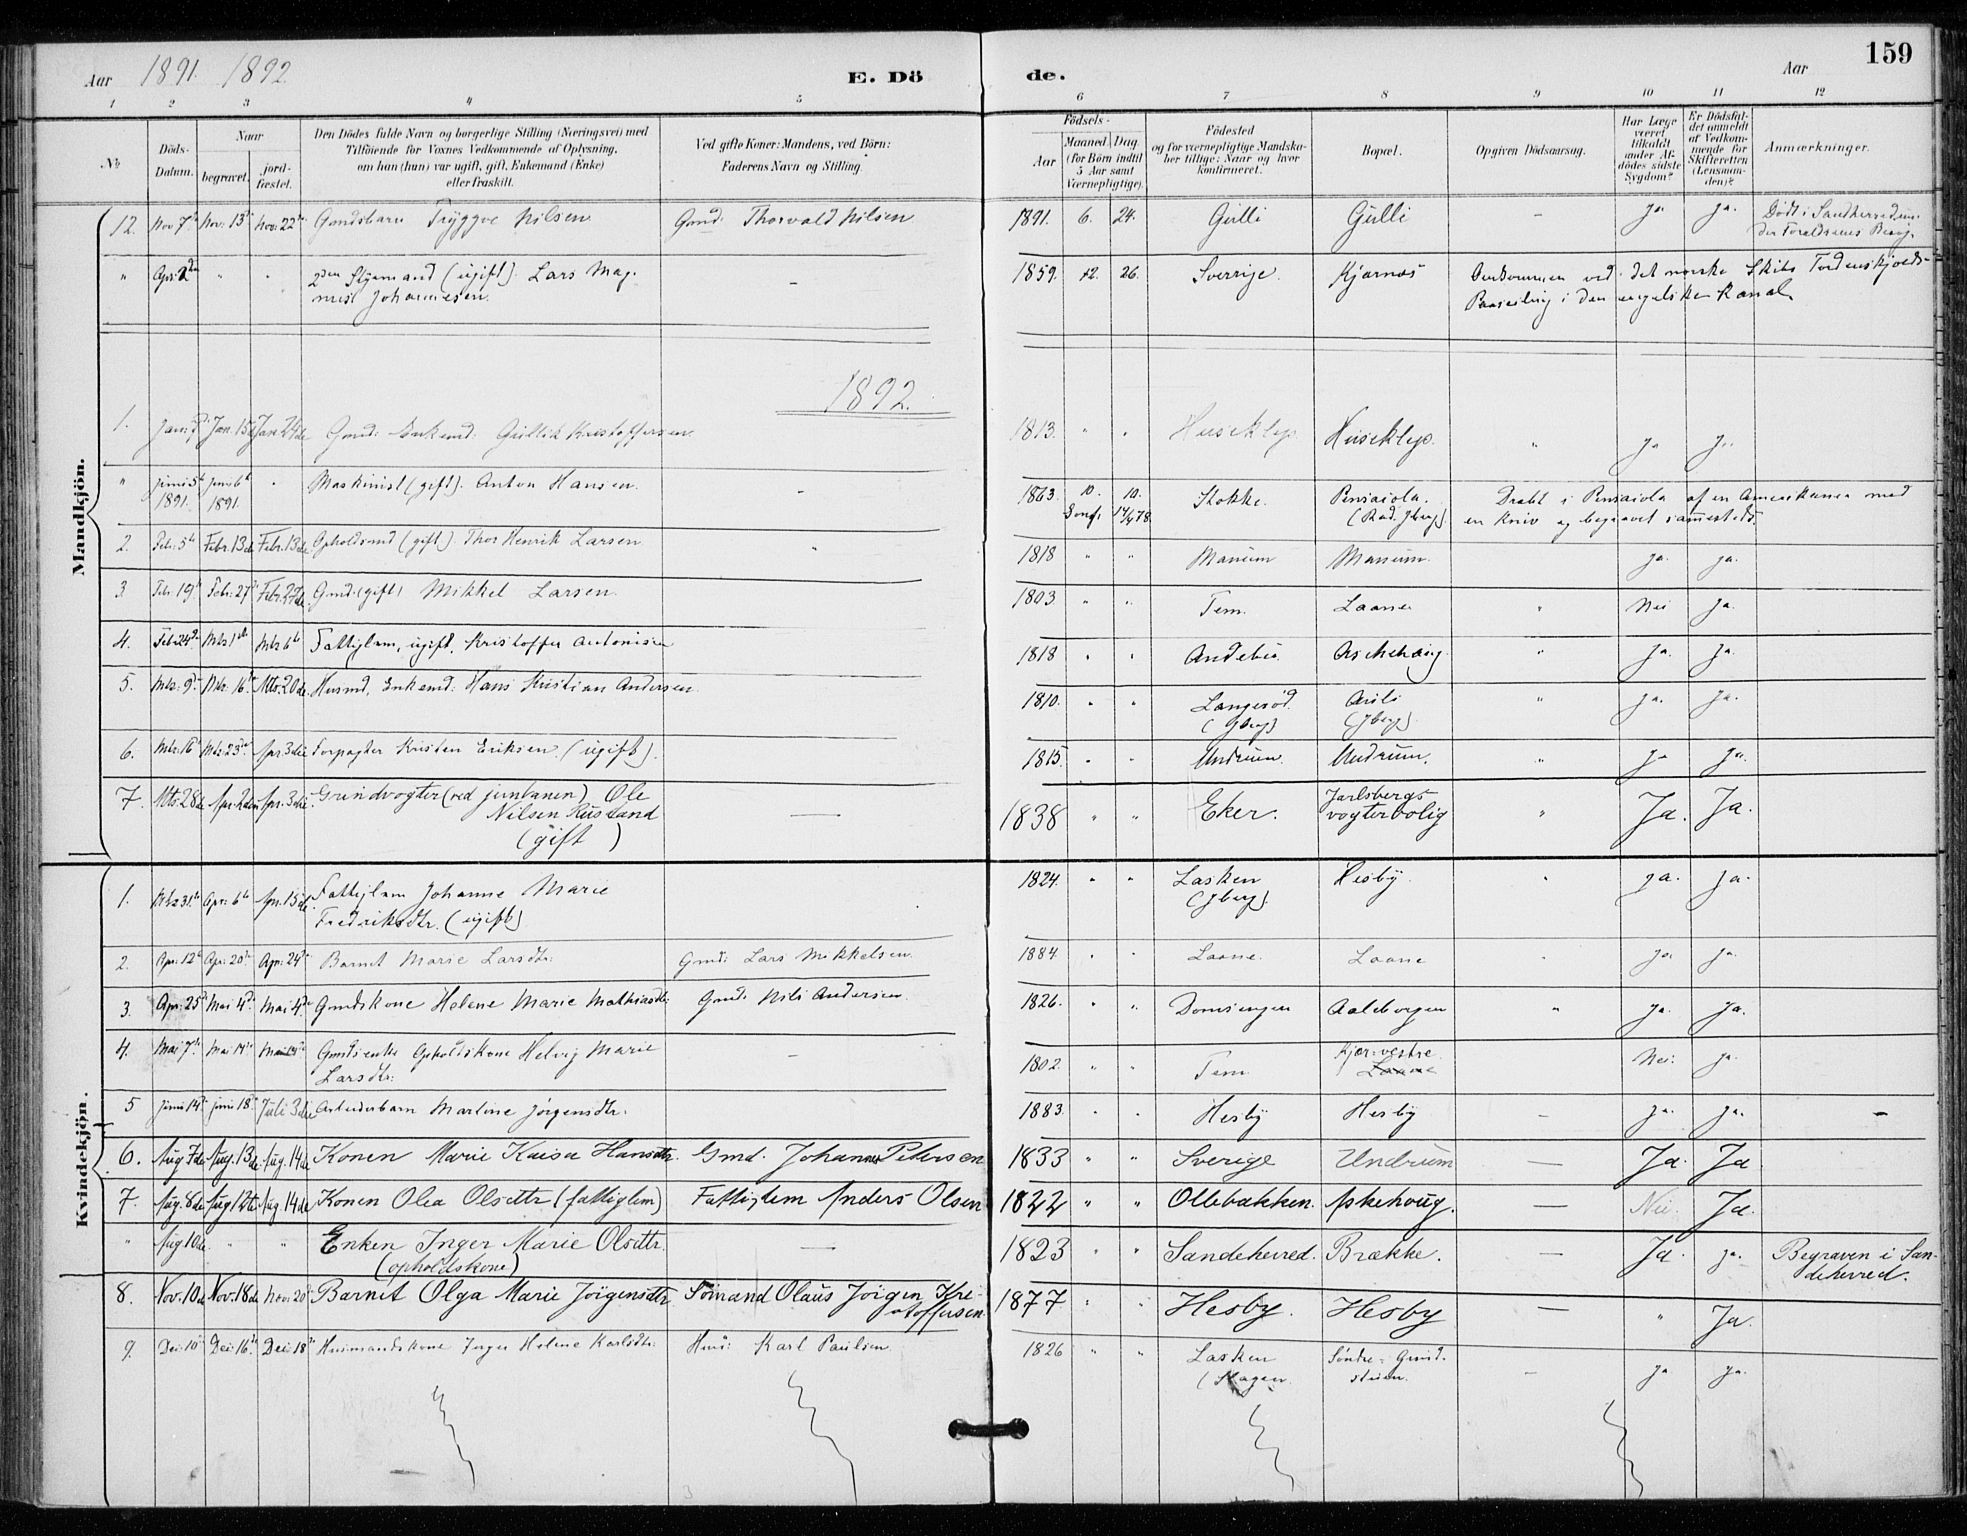 Aar 1891. 1892. E. Dö
de. Aar 159
1 2 3 4 5 6 7 8 9 10 11 12
№ Döds-Datum. Naar begravet. jord-fæstet. Den Dödes fulde Navn og borgerlige Stilling (Næringsvei) med Tilföiende for Voxnes Vedkommende af Oplysning, om han (hun) var ugift, gift, Enkemand (Enke) eller fraskilt. Ved gifte Koner: Mandens, ved Börn: Faderens Navn og Stilling. Födsels- Aar Maaned Dag (for Börn indtil 5 Aar samt Værnepligtige). Födested og for værnepligtige Mandskaber tillige: Naar og hvor konfirmeret. Bopæl. Opgiven Dödsaarsag. Har Læge været tilkaldt under Afdödes sidste Sygdom? Er Dödsfaldet anmeldt af Vedkommende for Skifteretten (Lensmanden)? Anmærkninger.
Mandkjön.
12. Nov 7de Nov. 13de Nov. 22de Gmdsbarn Tryggve Nilsen Gmd. Thorvald Nilsen 1891. 6. 24. Gulli Gulli – Ja. Ja. Födt i Sandeherred
" Apr. 2den " " 2den Styrmand (ugift). Lars Magnus Johannesen. – 1859. 12. 26. Sverige. Kjærnæs Omkommen ved det norske Skibs Tordenskjolds Paaseiling i den engelske Kanal
1892.
1. Jan. Jan. 15de Jan. 24de Gmd. Enkemd. Gullik Kristoffersen 1813. " " Huseklep Huseklep. " Ja Ja.
" Juni 5te 1891. Juni 6te 1891. " Maskinist (gift). Anton Hansen. – 1863. 10. 10. Stokke. Pensacola. Dræbt i Pensacola af en Amerikaner med en Kniv og begravet sammesteds.
2. Febr. 5te Febr. 13de Febr. 13de Opholdsmd (gift). Thor Henrik Larsen " 1818 " " Manum Manum. Ja. Ja.
3. Febr. 19de Febr. 27de Febr. 27de Gmd. (gift) Mikkel Larsen. 1803 " " Tem. Laane " Nei Ja.
4. Febr 24de Mts 1ste Mts 6te Fattiglem, ugift, Kristoffer Antonisen 1818 " " Andebu Askehaug. " Ja. Ja.
5. Mts. 9de Mts. 16de Mts. 20de Husmd. Enkemd: Hans Kristian Andersen 1810. " " Langesöd (Jberg) (Jberg). " Ja. Ja.
6. Mts. 16de Mts. 23de Apr. 3die Forpagter Kristen Eriksen. (ugift). 1815. " " Undrum. Undrum. " Ja Ja.
7. Mts. 28de Apr. 2den Apr. 3die Grindvogter (ved jernbanen) Ole Nilsen Rustand (gift) — 1838 " " Eker. Jarlsbergs vogterbolig " Ja. Ja.
Kvindekjön.
1. Mts 31te Apr. 6te Apr. 15de Fattiglem Johanne Marie Fredriksdtr. (ugift) 1824. " " Lasken (Jberg) Hesby. " Ja. Ja.
2. Apr. 12te Apr. 20de Apr. 24de Barnet Marie Larsdtr. Gmd: Lars Mikkelsen. 1884. " " Laane. Laane " Ja Ja.
3. Apr. 25de Mai 4de Mai 4de Gmdskone Helene Marie Mathiasdtr. Gmd. Nils Andersen. 1826. " " Domsengen Aaleborgen " Ja. Ja.
4. Mai 7de Mai 14de Mai Gmdsenke Opholdskone Helvig Marie Larsdtr: – 1802. " " Tem Kjær: vestre Laane Nei. Ja.
5 Juni 14de Juni 18de Juli 3die Arbeiderbarn Martine Jörgensdtr. 1883. " " Hesby Hesby – Ja. Ja. –
6. Aug 7de Aug. 13de Aug. 14de Konen Marie Kaisa Hansdtr. Gmd. Johannes Petersen 1833 " " Sverige Undrum — Ja. Ja
7. Aug. 8de Aug 12te Aug. 14de Konen Olea Olsdtr (fattiglem) Fattiglem Anders Olsen 1822 " " Ollebakken. Askehoug. — Nei. Ja.
" Aug 10de " " Enken Inger Marie Olsdtr. (opholdskone) — 1823 " " Sandeherred. Brække. — Ja. Ja. Begraven i Sandeherred.
8. Nov. 10de Nov. 18de Nov. 20de Barnet Olga Marie Jörgensdtr Sömand Olaus Jörgen Kristoffersen 1877 " " Hesby. Hesby — " Ja.
9. Dec. 10de Dec. 16de Dec. 18de Husmandskone Inger Helene Karlsdtr. Hus: Karl Paulsen. 1826 " " Lasken (Skagen. Söndre – Ja Ja.